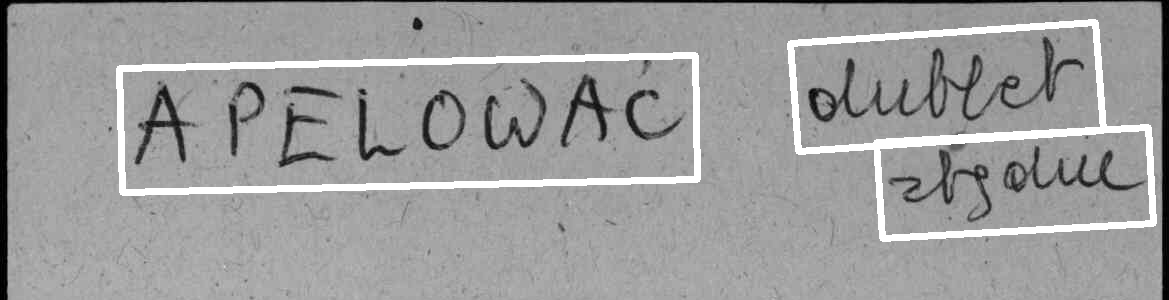 APELOWAĆ dublet
zbędne